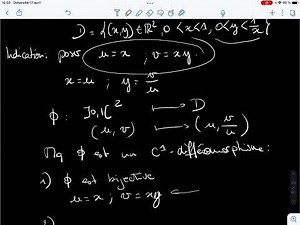 D = {(x,y) ∈ ℝ², 0 < x < 1, 0 < y < 1/x}
Indication: poser u = x ; v = xy.
x = u ; y = v/u
ϕ : ]0,1[² → D
(u, v) ↦ (u, v/u)
Mq ϕ est un C¹-difféomorphisme:
1) ϕ est bijective
u = x ; v = xy